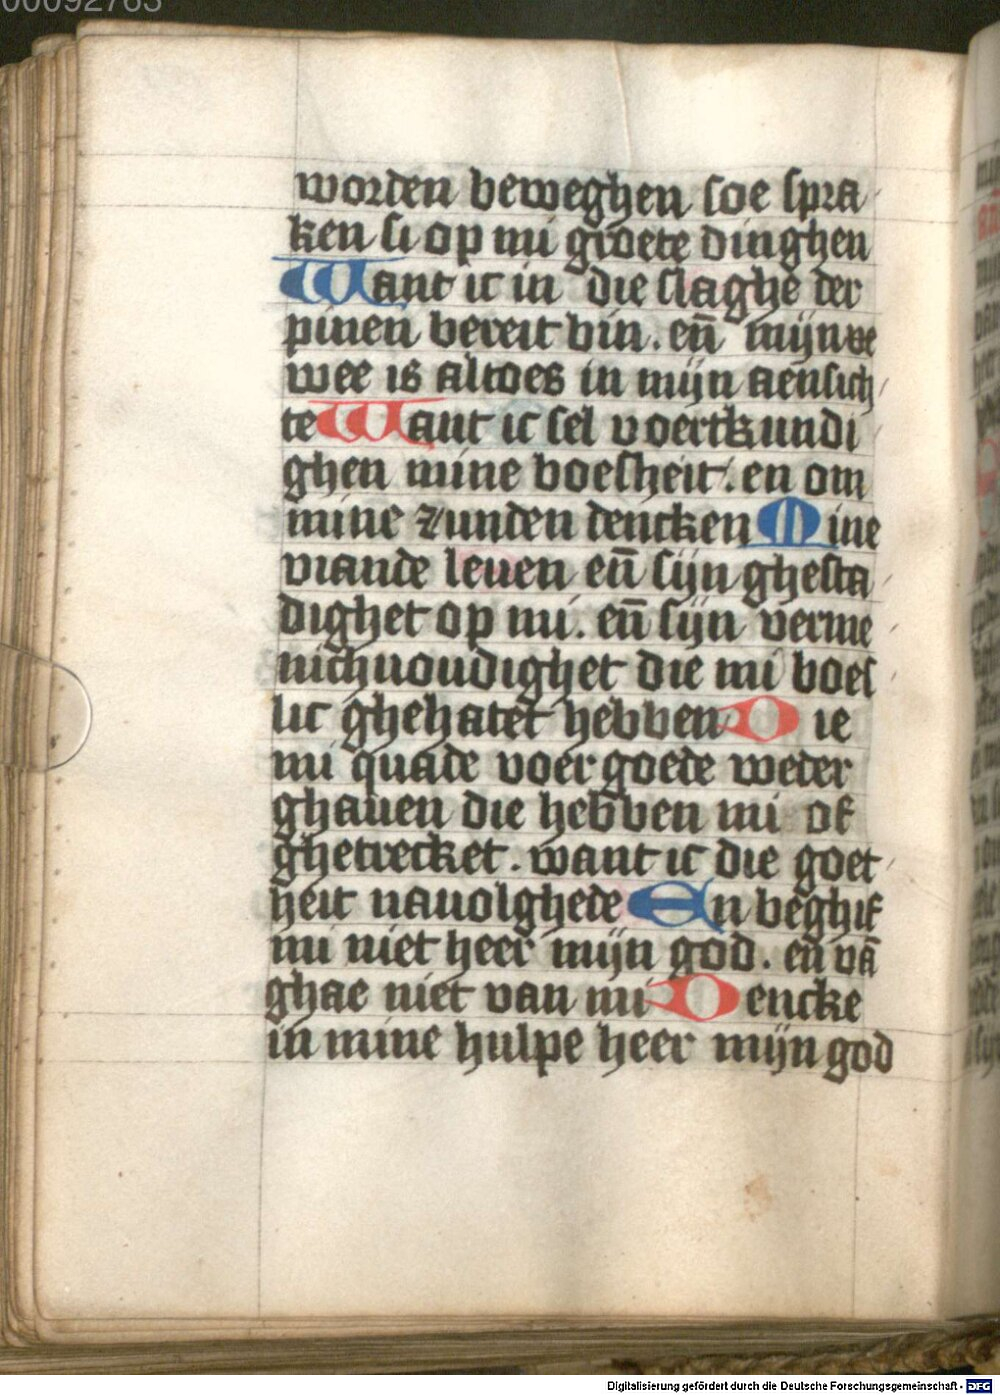 00092763
worden beweghen soe spra
ken si op mi groete dinghen
Want ic in die slaghe der
pinen bereit bin. en̄ mijn ve
wee is altoes in mijn aensich
te Want ic sel voertkundi
ghen mine boesheit. en om
mine zunden dencken Mine
viande leuen en̄ sijn ghesta
dighet op mi. en̄ sijn verme
nichuoudighet die mi boes
lic ghehatet hebben Die
mi quade voer goede weder
ghauen die hebben mi of
ghetrecket. want ic die goet
heit nauolghede En beghif
mi niet heer mijn god. en̄ vā
ghae niet van mi Dencke
in mine hulpe heer mijn god
Digitalisierung gefördert durch die Deutsche Forschungsgemeinschaft - DFG